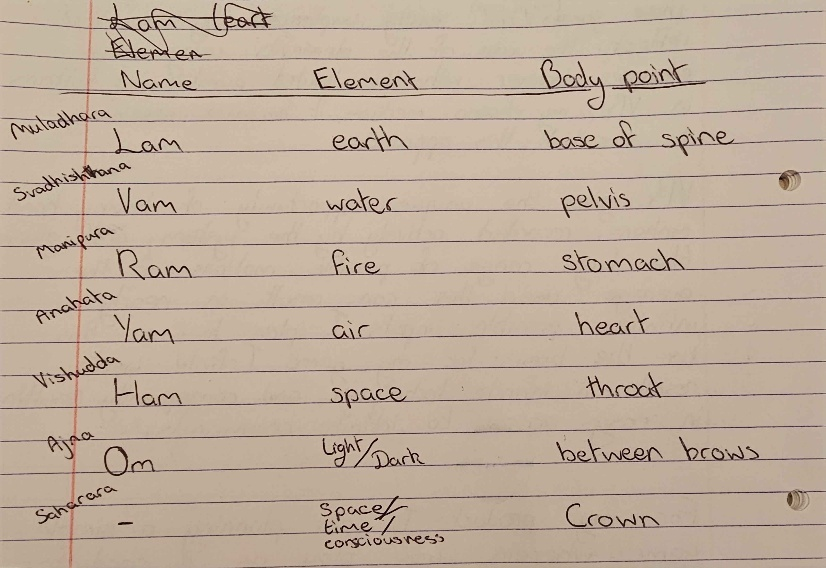 Lam (eart
Elemen
Name Element Body point
Muladhara
Lam earth base of spine
Svadhishthana
Vam water pelvis
Manipura
Ram fire stomach
Anahata
Yam air heart
Vishudda
Ham space throat
Ajna
Om Light/Dark between brows
Saharara
- Space/ Crown
time/
consciousness